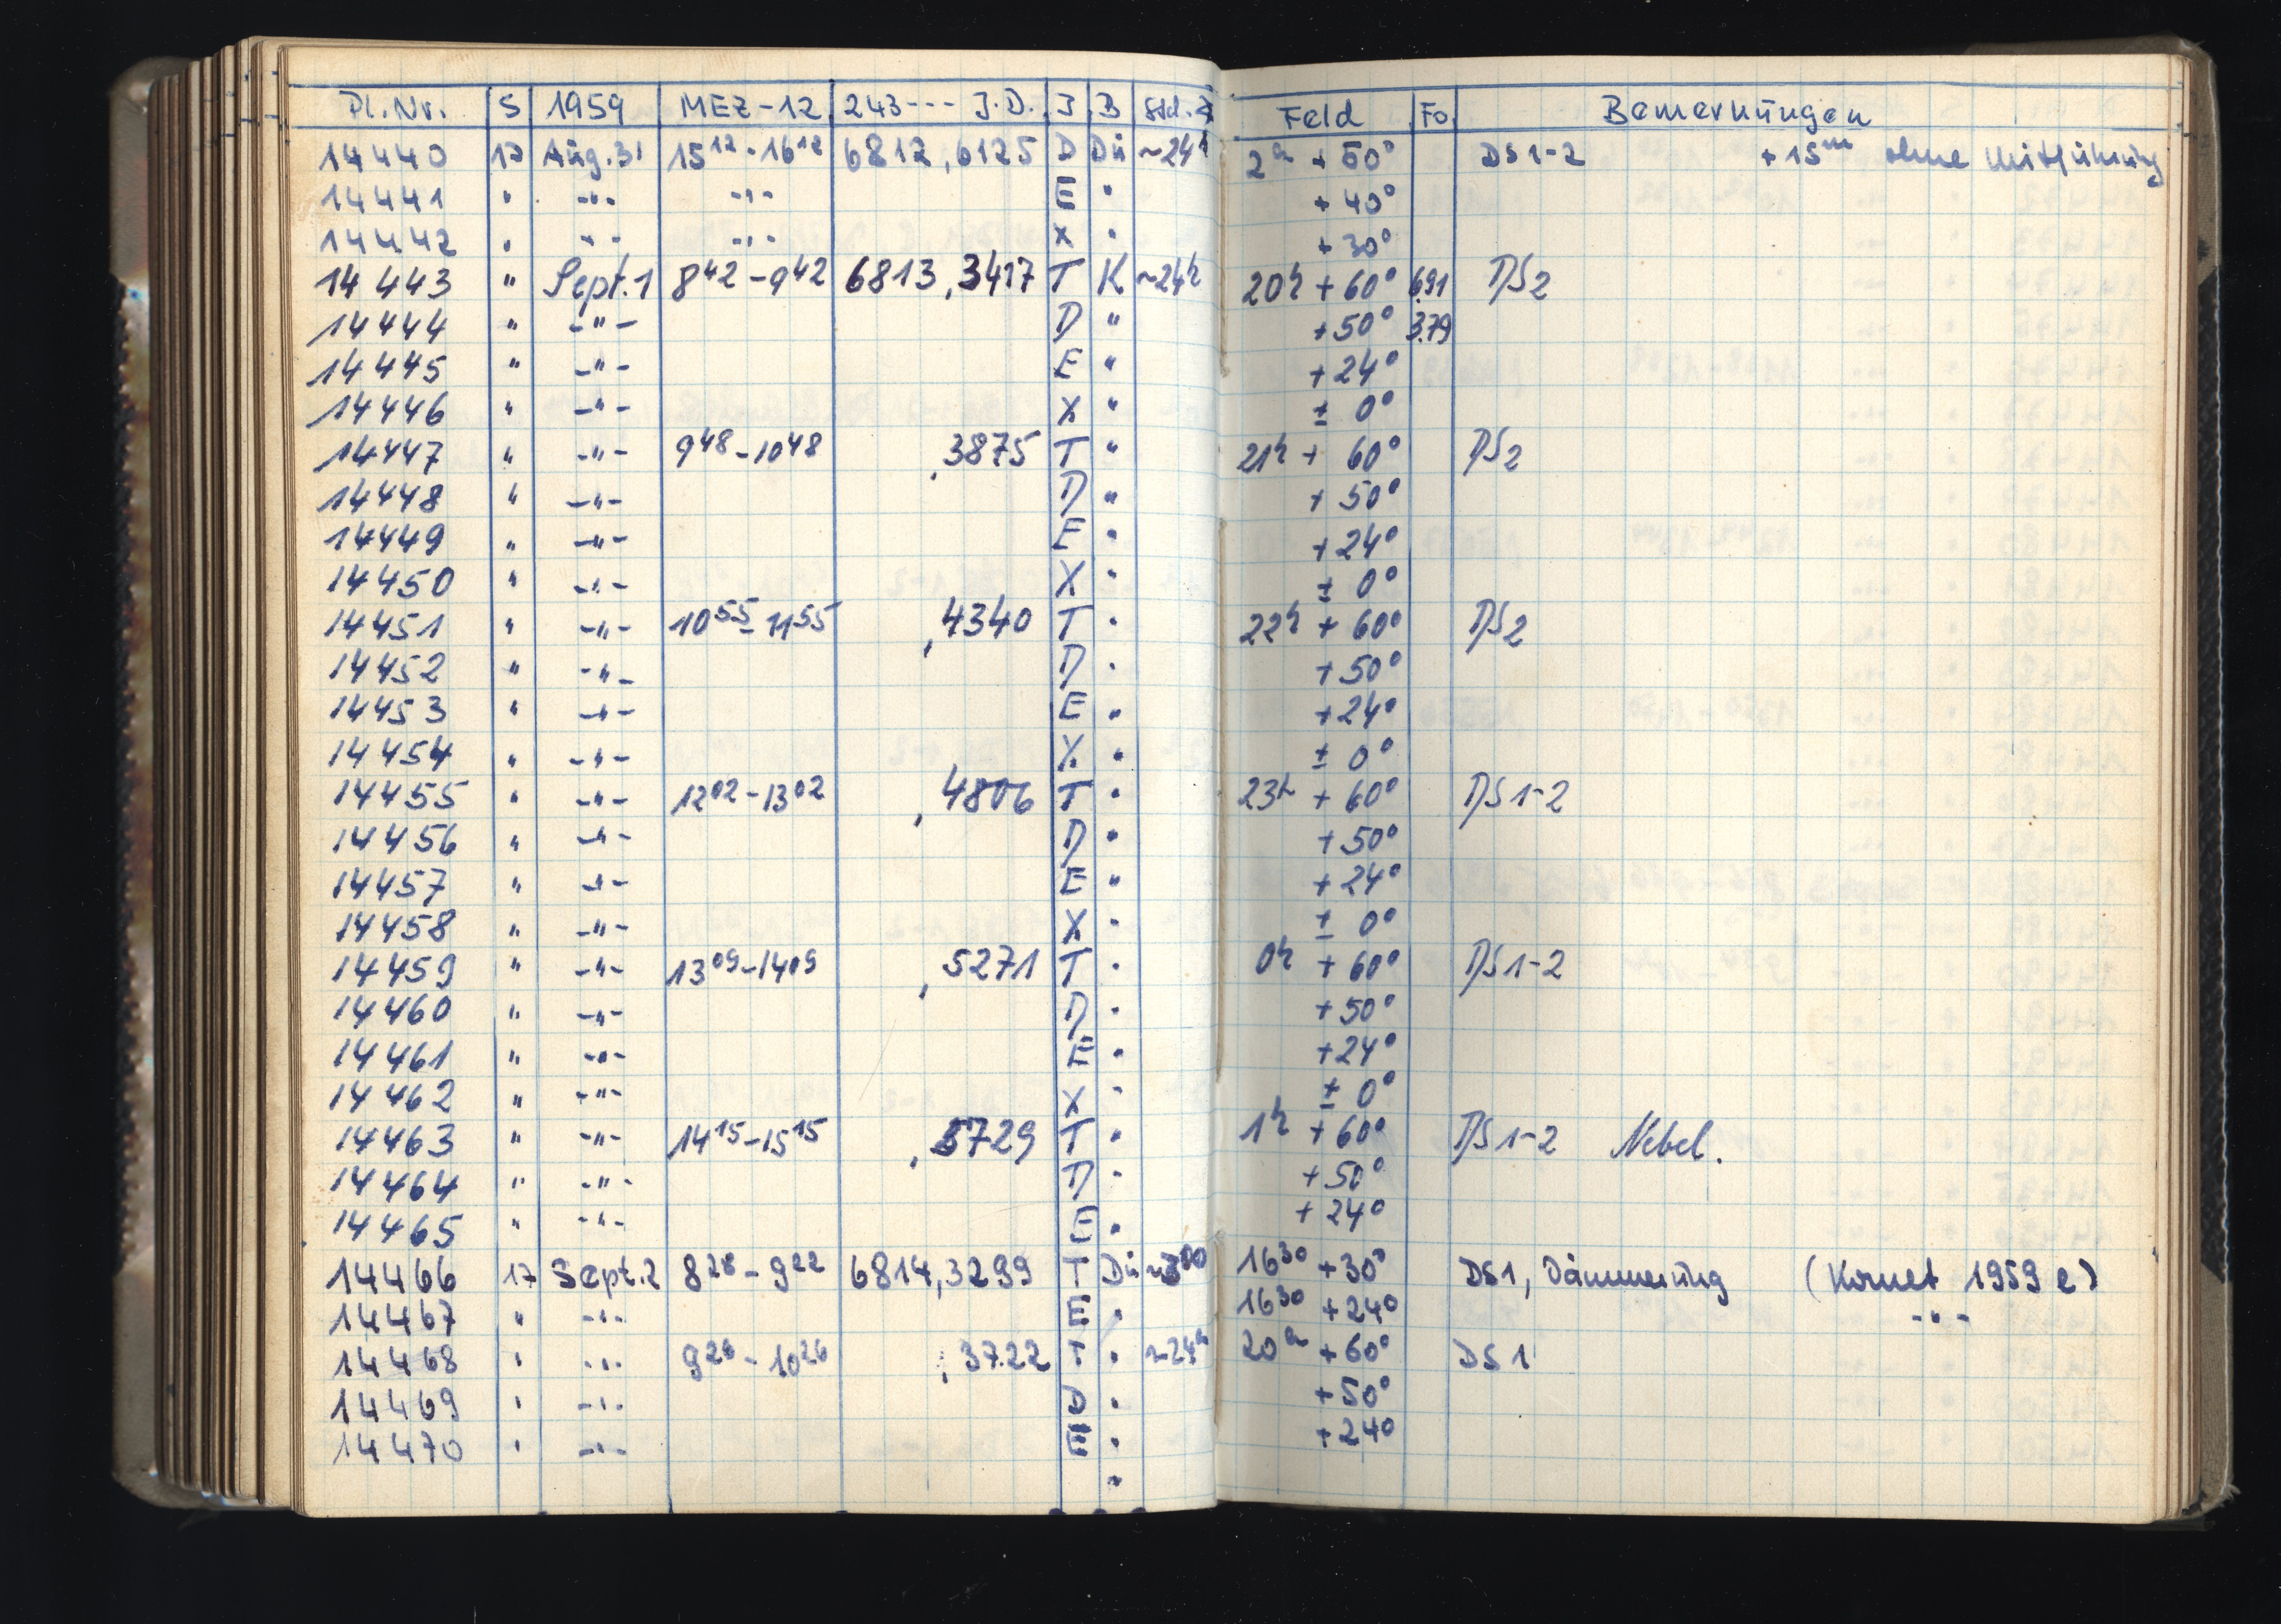 Pl. Nr. S 1959 MEZ-12 243--- J.D. J B Std. Feld Fo. Bemerkungen
14440 17 Aug. 31 15¹²-16¹² 6812,6125 D Dü ~24ʰ 2ʰ +50° DS1-2 +15ᵐ ohne Mitführung
14441 " -"- -"- E " +40°
14442 " -"- -"- X " +30°
14443 " Sept. 1 8⁴²-9⁴² 6813,3417 T K ~24ʰ 20ʰ +60° 6.91 DS2
14444 " -"- D " +50° 3.79
14445 " -"- E " +24°
14446 " -"- X " ± 0°
14447 " -"- 9⁴⁸-10⁴⁸ ,3875 T " 21ʰ + 60° DS2
14448 " -"- D " + 50°
14449 " -"- E " +24°
14450 " -"- X " ± 0°
14451 " -"- 10⁵⁵-11⁵⁵ ,4340 T " 22ʰ + 60° DS2
14452 " -"- D " +50°
14453 " -"- E " +24°
14454 " -"- X " ± 0°
14455 " -"- 12⁰²-13⁰² ,4806 T " 23ʰ + 60° DS1-2
14456 " -"- D " +50°
14457 " -"- E " +24°
14458 " -"- X " ± 0°
14459 " -"- 13⁰⁹-14⁰⁹ ,5271 T " 0ʰ +60° DS1-2
14460 " -"- D " +50°
14461 " -"- E " +24°
14462 " -"- X " ± 0°
14463 " -"- 14¹⁵-15¹⁵ ,5729 T " 1ʰ +60° DS1-2 Nebel.
14464 " -"- D " +50°
14465 " -"- E " +24°
14466 17 Sept. 2 8²⁸-9²² 6814,3299 T Dü ~3⁰⁰ 16³⁰ +30° DS1, Dämmerung (Komet 1959 e)
14467 " -"- E " 16³⁰ +24° -"-
14468 " -"- 9²⁶-10²⁶ ,3722 T " ~24ʰ 20ʰ +60° DS1
14469 " -"- D " +50°
14470 " -"- E " +24°
"